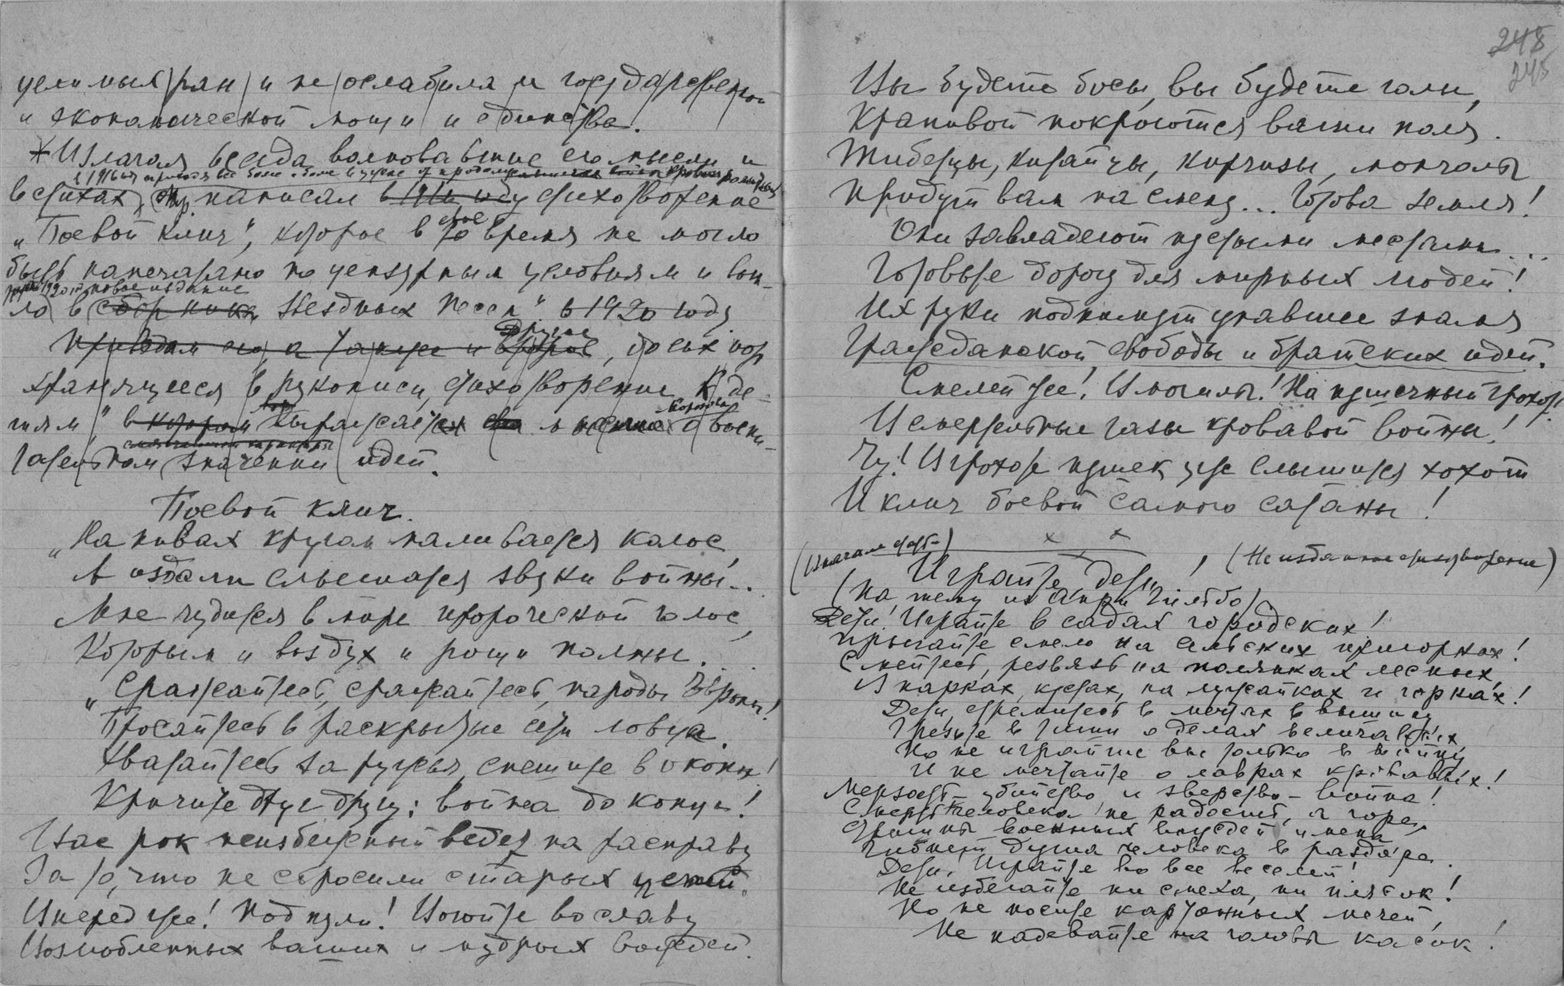 целых стран и не ослабила и государственной
и экономической мощи и единства.
Излагая всегда волновавшие его мысли и
в стихах, написал в стихотворение
"Боевой клич", которое в свое время не могло
быть напечатано по цензурным условиям и вош-
новое издание
ло в сборник Звездных песен" в 1920 году
Приводим его, а также и второе, до сих пор
другое
хранящееся в рукописи, стихотворение "К де-
тям", в котором выражается о воспи-
тательном значении идей.
Боевой клич.
"На нивах кругом наливается колос,
А издали слышатся звуки войны...
Мне чудится в мире пророческий голос,
Которым и воздух и рощи полны.
"Сражайтесь, сражайтесь, народы Европы!
Бросайтесь в раскрытые сети ловца.
Хватайтесь за ружья, спешите в окопы!
Кричите друг другу: война до конца!
Вас рок неизбежный ведет на расправу
За то, что не сбросили старых цепей.
Вперед же! Под пули! Воюйте во славу
Возлюбленных ваших и мудрых вождей!
248
245
Вы будете босы, вы будете голы,
Крапивой покроются ваши поля.
Тибетцы, китайцы, киргизы, монголы
Придут вам на смену... Готова земля!
Они завладеют пустыми местами...
Готовьте дорогу для мирных людей!
Их руки поднимут упавшее знамя
Гражданской свободы и братских идей.
Смелей же! В могилы! На пушечный грохот!
В смертельные газы кровавой войны!
Чу! В грохоте пушек уже слышится хохот
И клич боевой самого сатаны!
x x
x
(Неизданное стихотворение)
Играйте, дети,
(На тему из Анри Гильбо)
Дети! Играйте в садах городских!
Прыгайте смело на сельских пригорках!
Смейтесь, резвясь на полянках лесных,
В парках, кустах, на лужайках и горках!
Дети, стремитесь в мечтах в вышину
Грезьте в тиши о делах величавых
Но не играйте вы только в войну
И не мечтайте о лаврах кровавых!
Мерзость - убийство и зверство - война!
Смерть человека не радость, а горе,
Страшны военных вождей имена
Гибнет душа человека в раздоре.
Дети, Играйте во все веселей!
Не избегайте ни смеха, ни плясок!
Но не носите картонных мечей,
Не надевайте на головы касок!